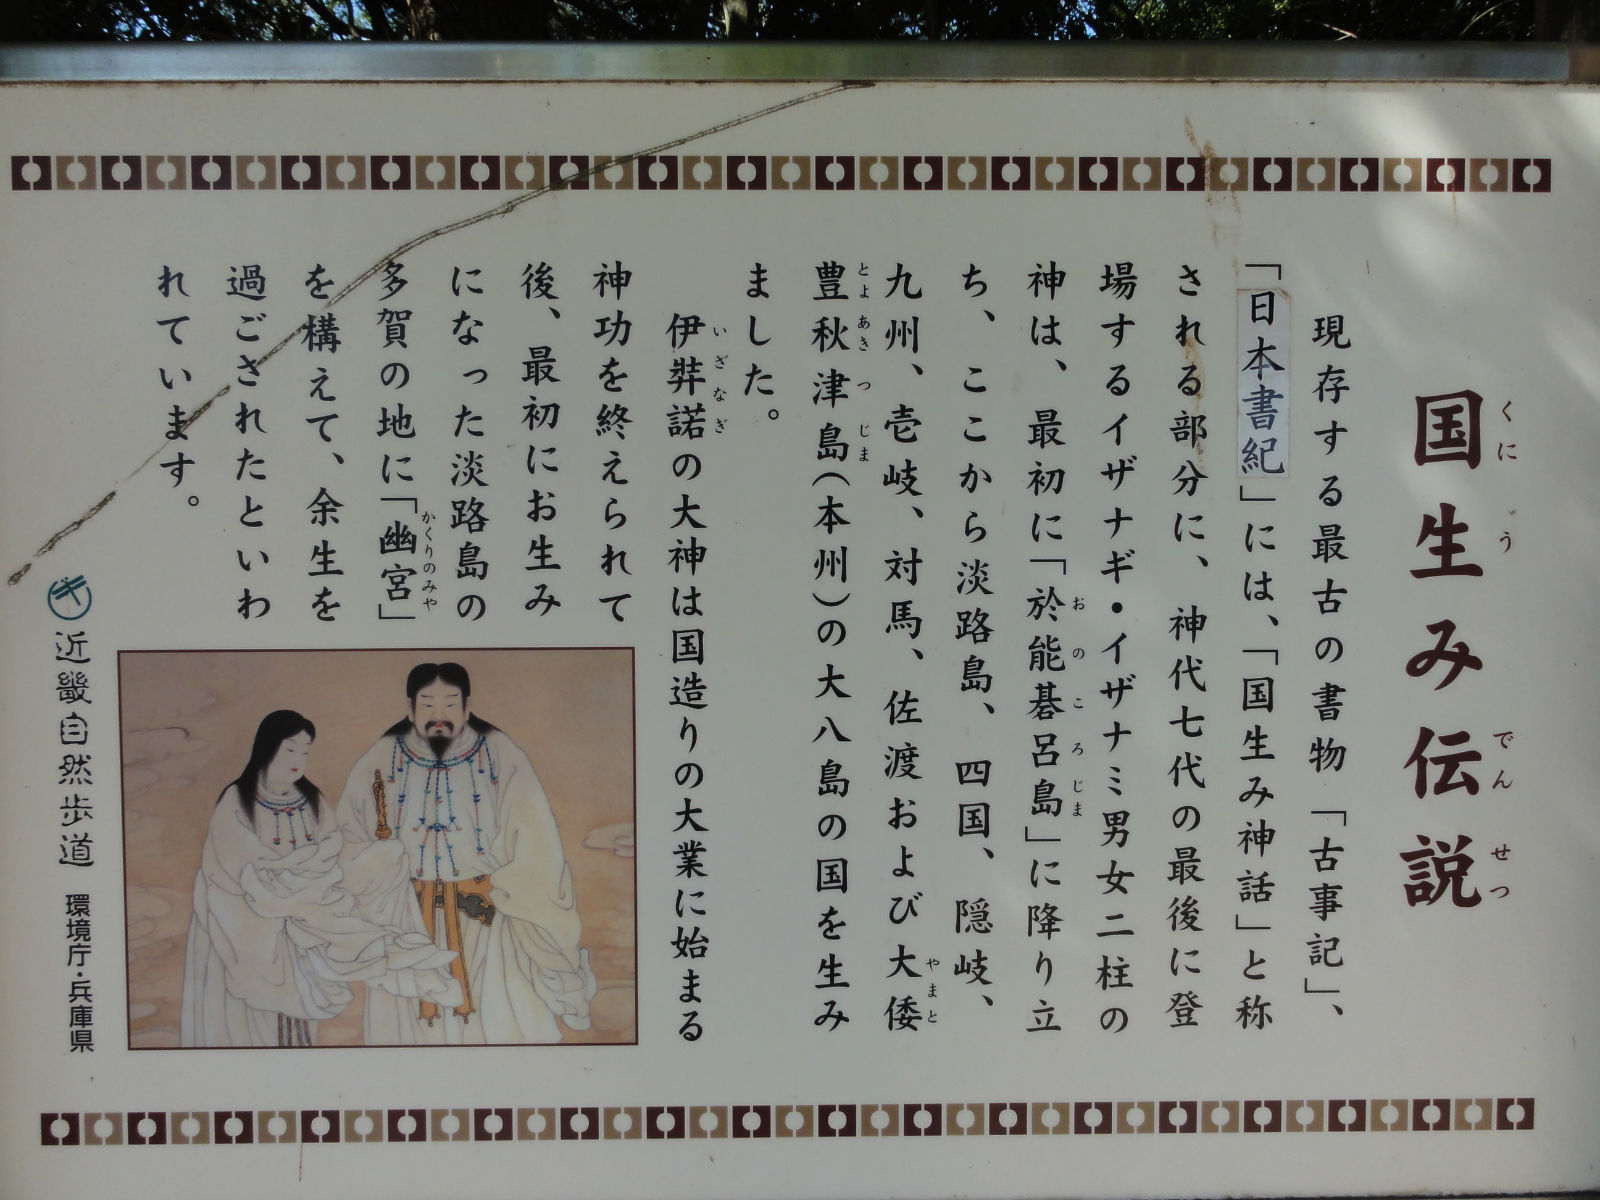 国生み伝説
くにうでんせつ
現存する最古の書物「古事記」、
「日本書紀」には、「国生み神話」と称
される部分に、神代七代の最後に登
場するイザナギ・イザナミ男女二柱の
神は、最初に「於能碁呂島」に降り立
おのころじま
ち、ここから淡路島、四国、隠岐、
九州、壱岐、対馬、佐渡および大倭
やまと
豊秋津島(本州)の大八島の国を生み
とよあきつじま
ました。
伊弉諾の大神は国造りの大業に始まる
いざなぎ
神功を終えられて
後、最初にお生み
になった淡路島の
多賀の地に「幽宮」
かくりのみや
を構えて、余生を
過ごされたといわ
れています。
近畿自然歩道 環境庁・兵庫県